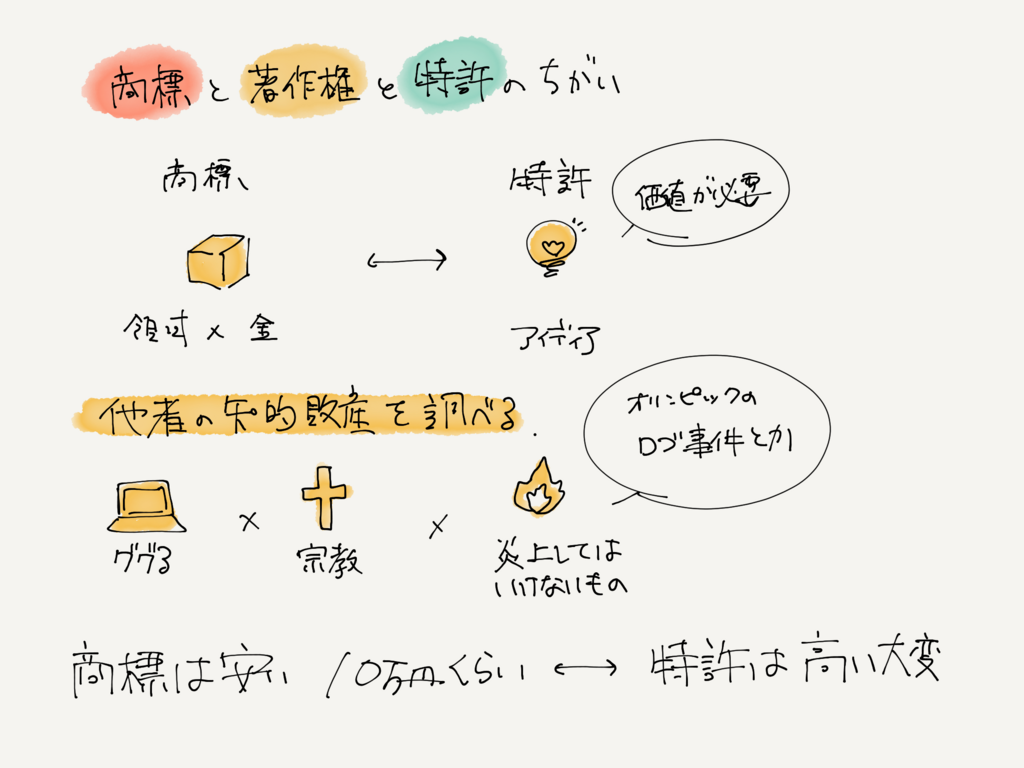 商標と著作権と特許のちがい
商標
特許
価値が必要
領域 × 金
アイディア
他者の知的財産を調べる.
オリンピックの
ロゴ事件とか
×
×
ググる
宗教
炎上しては
いけないもの
商標は安い 10万円くらい ↔ 特許は高い大変